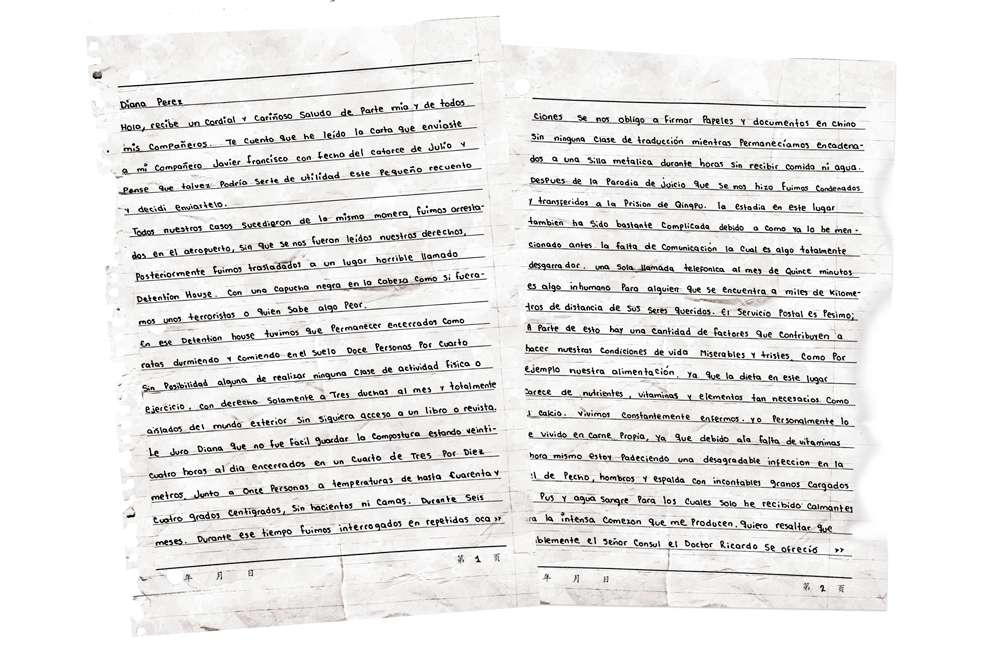 Diana Perez
Hola, recibe un Cordial y Cariñoso Saludo de Parte mia y de todos
mis Compañeros. Te Cuento que he leído la Carta que enviaste
a mi Compañero Javier francisco con fecha del catorce de Julio y
Pense que talvez Podría Serte de utilidad este Pequeño recuento
y decidi Enviartelo.
Todos nuestros casos Sucedieron de la misma manera, fuimos arresta-
dos en el aeropuerto, Sin que se nos fueran leídos nuestros derechos,
Posteriormente fuimos trasladados a un lugar horrible llamado
Detention House. Con una Capucha negra en la Cabeza Como si fuera-
mos unos terroristas o quien Sabe algo Peor.
En ese Detention house tuvimos que Permanecer encerrados Como
ratas durmiendo y comiendo en el suelo Doce Personas Por Cuarto
Sin Posibilidad alguna de realizar ninguna Clase de actividad física o
ejercicio, con derecho Solamente a Tres duchas al mes y totalmente
aislados del mundo exterior Sin Siquiera acceso a un libro o revista.
Le Juro Diana que no fue Facil guardar la Compostura estando veinti-
Cuatro horas al día encerrados en un Cuarto de Tres Por Diez
metros, Junto a Once Personas a temperaturas de hasta Cuarenta y
Cuatro grados Centigrados, Sin hacientos ni Camas. Durante Seis
meses. Durante ese tiempo fuimos interrogados en repetidas oca »
年 月 日
第 1 页
Ciones Se nos obligo a Firmar Papeles y documentos en chino
Sin ninguna Clase de traducción mientras Permanecíamos encadena-
dos a una Silla metalica durante horas Sin recibir comida ni agua.
Despues de la Parodia de juicio que Se nos hizo Fuimos Condenados
y transferidos a la Prision de Qingpu. la Estadia en este lugar
tambien ha Sido bastante Complicada debido a como ya lo he men-
cionado antes la falta de Comunicación la Cual es algo totalmente
desgarrador. una Sola llamada telefonica al mes de Quince minutos
es algo inhumano Para alguien que se encuentra a miles de Kilome-
tros de distancia de Sus Seres queridos. El Servicio Postal es Pesimo;
A Parte de esto hay una cantidad de factores que Contribuyen a
hacer nuestras Condiciones de vida Miserables y tristes, Como Por
ejemplo nuestra alimentación, Ya que la dieta en este lugar
Carece de nutrientes, vitaminas y elementos tan necesarios Como
calcio. Vivimos Constantemente enfermos. yo Personalmente lo
e vivido en carne Propia, ya que debido ala falta de vitaminas
hora mismo estoy Padeciendo una desagradable infeccion en la
l de Pecho, hombros y espalda con incontables granos Cargados
Pus y agua Sangre Para los Cuales Solo he recibido Calmantes
ra la intensa Comezon que me Producen. quiero resaltar que
blemente el Señor Consul el Doctor Ricardo Se ofreció »
年 月 日
第 2 页